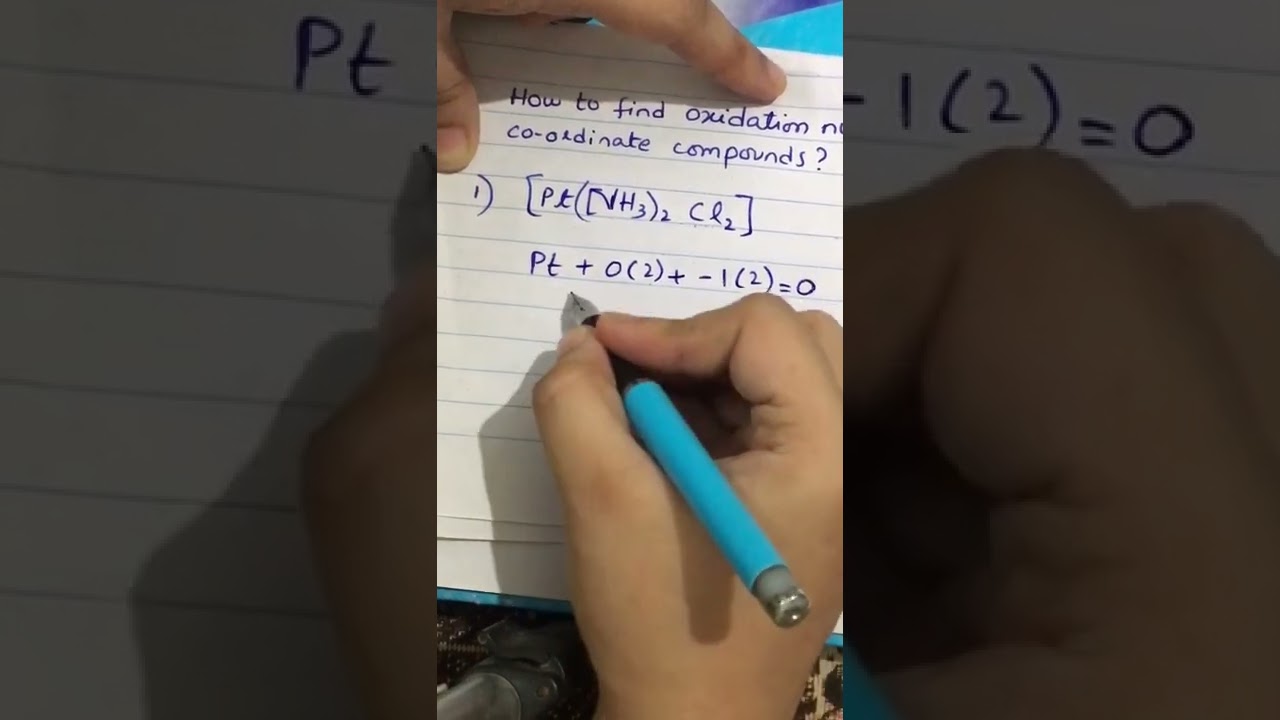 How to find oxidation
co-ordinate compounds?
1) [Pt(NH3)2 Cl2]
Pt + 0(2) + -1(2) = 0